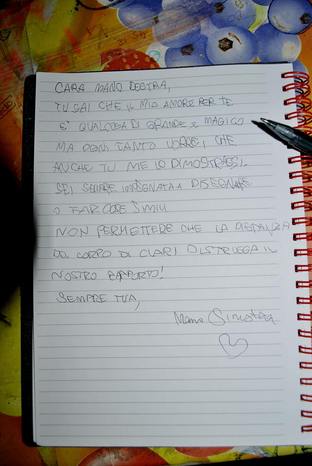 CARA MANO DESTRA,
TU SAI CHE IL MIO AMORE PER TE
E' QUALCOSA DI GRANDE E MAGICO
MA OGNI TANTO VORREI CHE
ANCHE TU ME LO DIMOSTRASSI.
SEI SEMPRE IMPEGNATA A DISEGNARE
O FAR COSE SIMILI
NON PERMETTERE CHE LA DISTANZA
DEL CORPO DI CLARI DISTRUGGA IL
NOSTRO RAPPORTO!
SEMPRE TUA,
Mano Sinistra